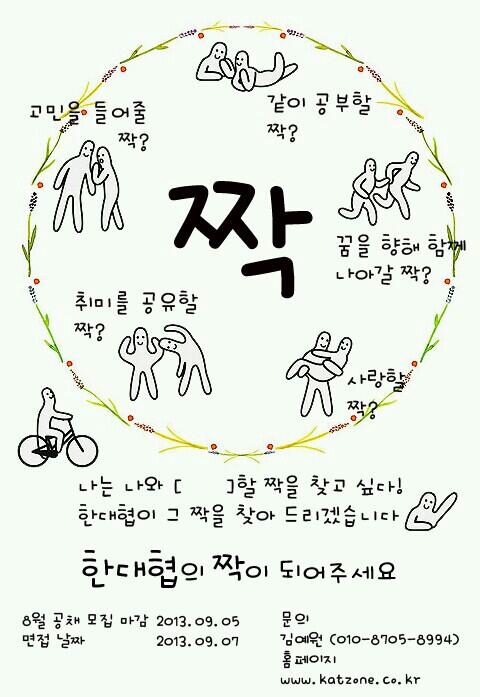 고민을 들어줄
짝?
같이 공부할
짝?
짝
꿈을 향해 함께
나아갈 짝?
취미를 공유할
짝?
사랑할
짝?
나는 나와 [     ]할 짝을 찾고 싶다!
한대협이 그 짝을 찾아 드리겠습니다
한대협의 짝이 되어주세요
8월 공채 모집 마감 2013.09.05
면접 날짜 2013.09.07
문의
김예원 (010-8705-8994)
홈페이지
www.katzone.co.kr